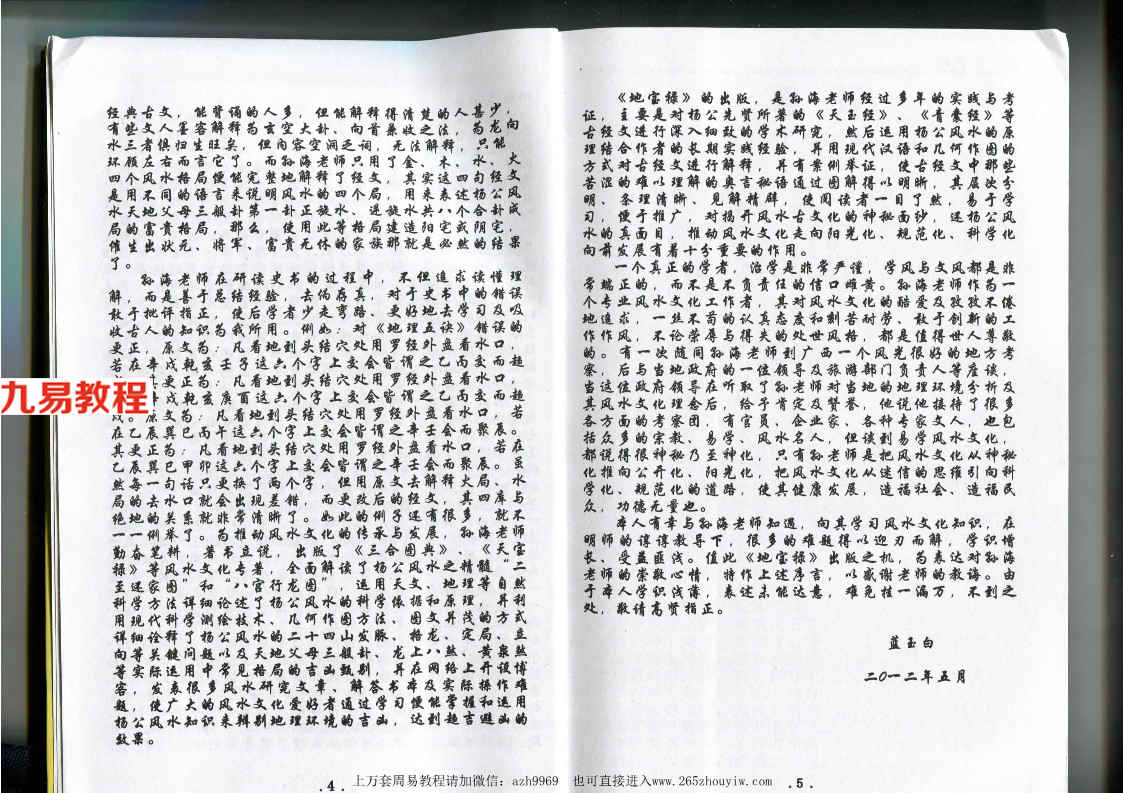 经典古文，能背诵的人多，但能解释得清楚的人甚少，
有些文人墨客解释为玄空大卦、向首兼收之法，为龙向
水三者俱归生旺矣，但内容空洞乏词，无法解释，只能
环顾左右而言它了。而孙海老师只用了金、木、水、火
四个风水格局便能完整地解释了经文，其实这四句经文
是用不同的语言来说明风水的四个局，用来表述杨公风
水天地父母三般卦第一卦正旋水、逆旋水共八个合卦成
局的富贵格局，那么，使用此等格局建造阳宅或阴宅，
催生出状元、将军、富贵无休的家族那就是必然的结果
了。
孙海老师在研读史书的过程中，不但追求读懂理
解，而是善于总结经验，去伪存真，对于史书中的错误
敢于批评指正，使后学者少走弯路、更好地去学习及吸
收古人的知识为我所用。例如：对《地理五诀》错误的
更正，原文为：凡看地到头结穴处用罗经外盘看水口，
若在辛戌乾亥壬子这六个字上交会皆谓之乙丙交而趋
其更正为：凡看地到头结穴处用罗经外盘看水口，
辛戌乾亥庚酉这六个字上交会皆谓之乙丙交而趋
戌。原文为：凡看地到头结穴处用罗经外盘看水口，若
在乙辰巽巳丙午这六个字上交会皆谓之辛壬会而聚辰。
其更正为：凡看地到头结穴处用罗经外盘看水口，若在
乙辰巽巳甲卯这六个字上交会皆谓之辛壬会而聚辰。虽
然每一句话只更换了两个字，但用原文去解释火局、水
局的去水口就会出现差错，而更改后的经文，其四库与
绝地的关系就非常清晰了。如此的例子还有很多，就不
一一例举了。为推动风水文化的传承与发展，孙海老师
勤奋笔耕，著书立说，出版了《三合图典》、《天宝
禄》等风水文化专著，全面解读了杨公风水之精髓“二
至还家图”和“八宫行龙图”，运用天文、地理等自然
科学方法详细论述了杨公风水的科学依据和原理，并利
用现代科学测绘技术、几何作图方法、图文并茂的方式
详细诠释了杨公风水的二十四山发脉、格龙、定局、立
向等关键问题以及天地父母三般卦、龙上八煞、黄泉煞
等实际运用中常见格局的吉凶甄别，并在网络上开设博
客，发表很多风水研究文章、解答书本及实际操作难
题，使广大的风水文化爱好者通过学习便能掌握和运用
杨公风水知识来辩别地理环境的吉凶，达到趋吉避凶的
效果。
.4.
《地宝禄》的出版，是孙海老师经过多年的实践与考
证，主要是对杨公先贤所著的《天玉经》、《青囊经》等
古经文进行深入细致的学术研究，然后运用杨公风水的原
理结合作者的长期实践经验，并用现代汉语和几何作图的
方式对古经文进行解释，并有案例举证，使古经文中那些
苦涩的难以理解的奥言秘语通过图解得以明晰，其层次分
明、条理清晰、见解精辟，使阅读者一目了然，易于学
习，便于推广，对揭开风水古文化的神秘面纱，还杨公风
水的真面目，推动风水文化走向阳光化、规范化、科学化
向前发展有着十分重要的作用。
一个真正的学者，治学是非常严谨，学风与文风都是非
常端正的，而不是不负责任的信口雌黄。孙海老师作为一
个专业风水文化工作者，其对风水文化的酷爱及孜孜不倦
地追求，一丝不苟的认真态度和刻苦耐劳、敢于创新的工
作作风，不论荣辱与得失的处世风格，都是值得世人尊敬
的。有一次随同孙海老师到广西一个风光很好的地方考
察，后与当地政府的一位领导及旅游部门负责人等座谈，
当这位政府领导在听取了孙老师对当地的地理环境分析及
其风水文化理念后，给予肯定及赞誉，他说他接待了很多
各方面的考察团，有官员、企业家、各种专家文人，也包
括众多的宗教、易学、风水名人，但谈到易学风水文化，
都说得很神秘乃至神化，只有孙老师是把风水文化从神秘
化推向公开化、阳光化，把风水文化从迷信的思维引向科
学化、规范化的道路，使其健康发展，造福社会、造福民
众，功德无量也。
本人有幸与孙海老师知遇，向其学习风水文化知识，在
明师的谆谆教导下，很多的难题得以迎刃而解，学识增
长、受益匪浅。值此《地宝禄》出版之机，为表达对孙海
老师的崇敬心情，特作上述序言，以感谢老师的教诲。由
于本人学识浅薄，表述未能达意，难免挂一漏万，不到之
处，敬请高贤指正。
蓝玉白
二〇一二年五月
.5.
九易教程
上万套周易教程请加微信：azh9969 也可直接进入www.265zhouyiw.com